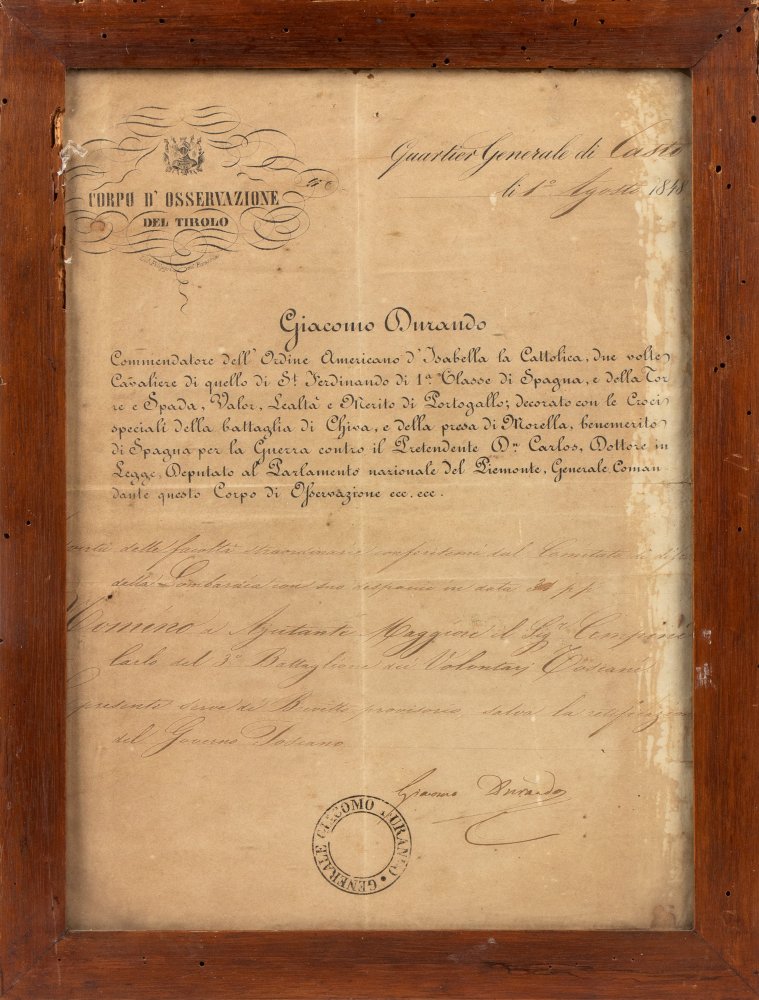 CORPO D'OSSERVAZIONE
DEL TIROLO
Quartier Generale di
li 1º Agosto 1848
Giacomo Durando
Commendatore dell'Ordine Americano d'Isabella la Cattolica, due volte
Cavaliere di quello di St. Ferdinando di 1ª. Classe di Spagna, e della Tor
re e Spada, Valor, Lealtà e Merito di Portogallo; decorato con le Croci
speciali della battaglia di Chiva, e della presa di Morella, benemerito
di Spagna per la Guerra contro il Pretendente Dn. Carlos, Dottore in
Legge, Deputato al Parlamento nazionale del Piemonte, Generale Coman
dante questo Corpo di Osservazione ecc. ecc.
delle facoltà straordinarie conferitemi dal Comitato di
della Lombardia con suo dispaccio in data pp
Nomino a Ajutante Maggiore il Sigr. Campini
Carlo del 3º Battaglione dei Volontarj Toscani
presente serve di Brevetto provvisorio, salva la
del Governo Toscano
Giacomo Durando
GENERALE GIACOMO DURANDO